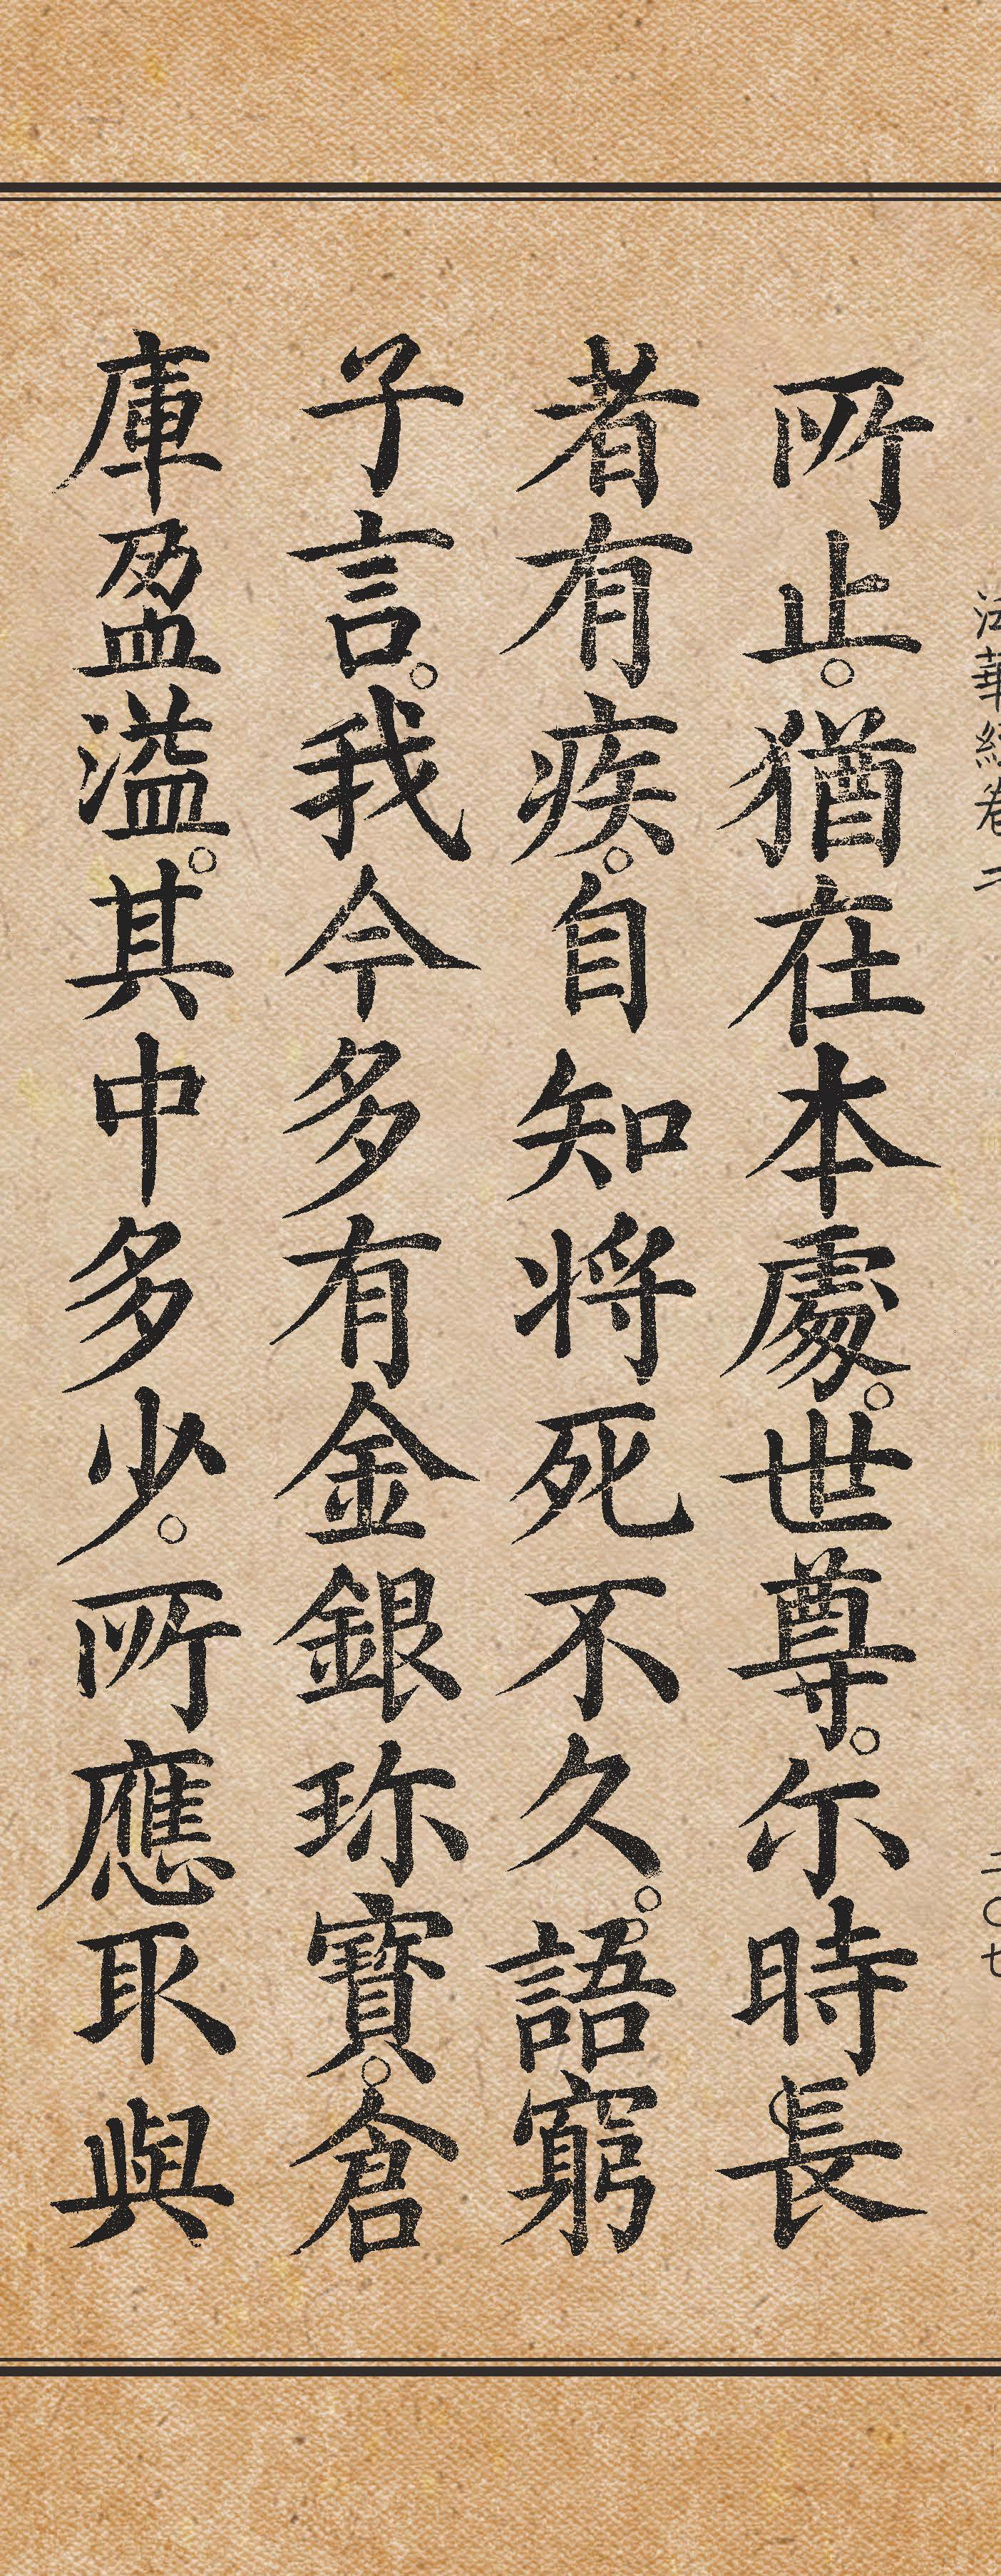 法華經卷二
二〇七
所止。猶在本處。世尊。尓時長
者有疾。自知将死不久。語窮
子言。我今多有金銀珎寶。倉
庫盈溢。其中多少。所應取與